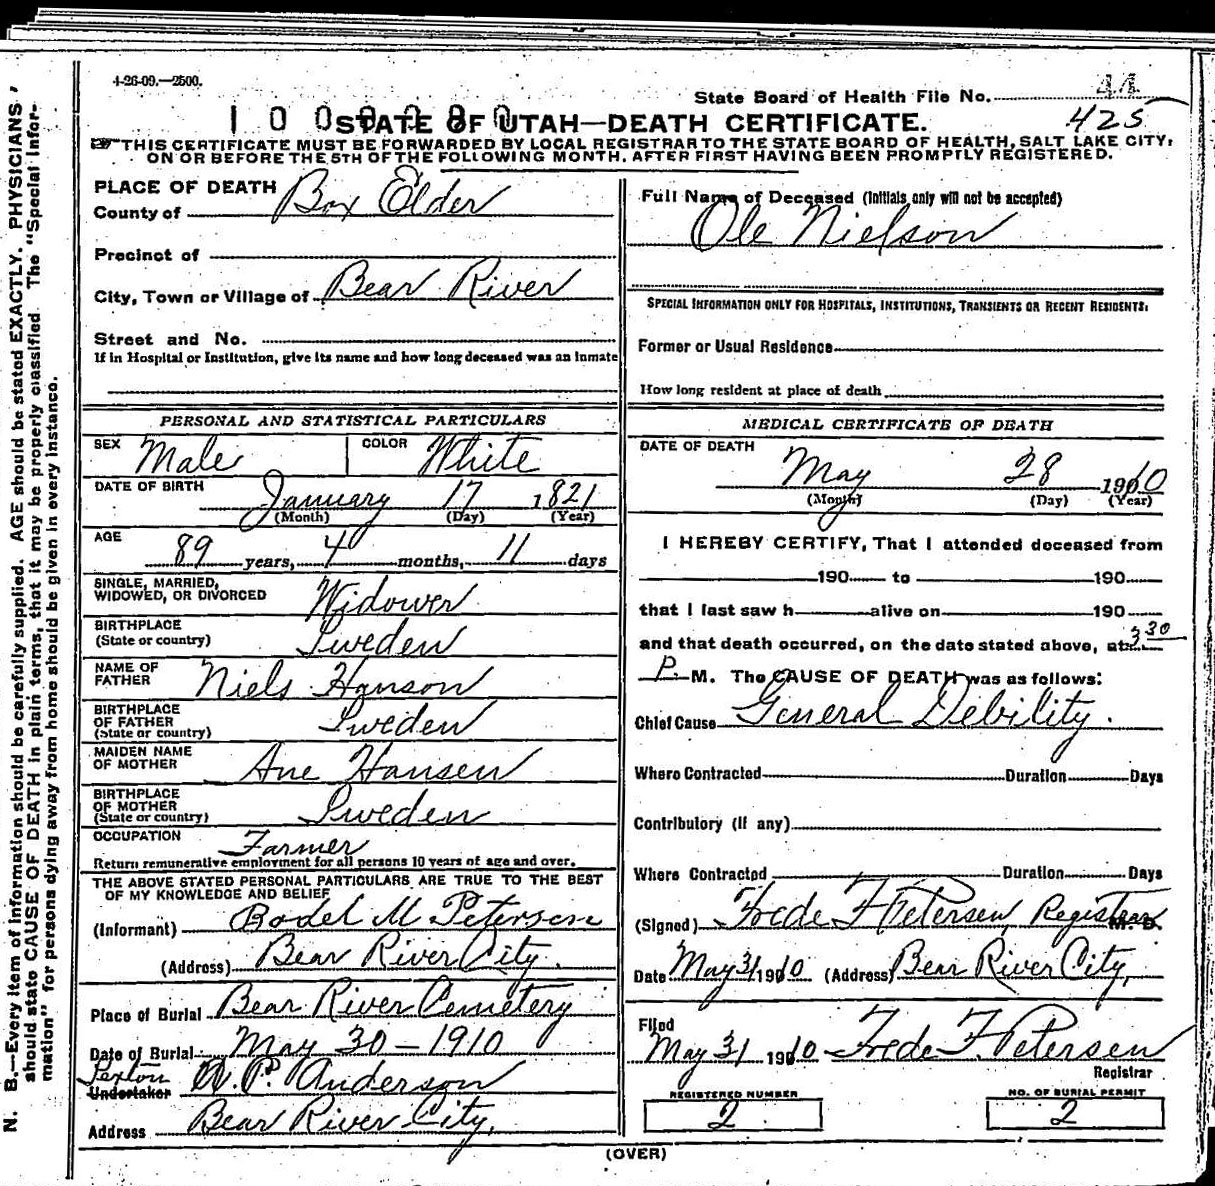 4-26-09.—2500.
44
State Board of Health File No.
1 0 0 0 2 8 0
STATE OF UTAH—DEATH CERTIFICATE.
425
THIS CERTIFICATE MUST BE FORWARDED BY LOCAL REGISTRAR TO THE STATE BOARD OF HEALTH, SALT LAKE CITY,
ON OR BEFORE THE 5TH OF THE FOLLOWING MONTH, AFTER FIRST HAVING BEEN PROMPTLY REGISTERED.
PLACE OF DEATH
County of Box Elder
Precinct of
City, Town or Village of Bear River
Street and No.
If in Hospital or Institution, give its name and how long deceased was an inmate
PERSONAL AND STATISTICAL PARTICULARS
SEX Male COLOR White
DATE OF BIRTH January 17 1821
(Month) (Day) (Year)
AGE 89 years, 4 months, 11 days
SINGLE, MARRIED,
WIDOWED, OR DIVORCED Widower
BIRTHPLACE
(State or country) Sweden
NAME OF
FATHER Niels Hanson
BIRTHPLACE
OF FATHER
(State or country) Sweden
MAIDEN NAME
OF MOTHER Ane Hansen
BIRTHPLACE
OF MOTHER
(State or country) Sweden
OCCUPATION Farmer
Return remunerative employment for all persons 10 years of age and over.
THE ABOVE STATED PERSONAL PARTICULARS ARE TRUE TO THE BEST
OF MY KNOWLEDGE AND BELIEF
(Informant) Bodel M Petersen
(Address) Bear River City.
Place of Burial Bear River Cemetery
Date of Burial May 30 – 1910
Sexton
Undertaker A. P. Anderson
Address Bear River City,
Full Name of Deceased (Initials only will not be accepted)
Ole Nielson
SPECIAL INFORMATION ONLY FOR HOSPITALS, INSTITUTIONS, TRANSIENTS OR RECENT RESIDENTS:
Former or Usual Residence
How long resident at place of death
MEDICAL CERTIFICATE OF DEATH
DATE OF DEATH
May 28 1910
(Month) (Day) (Year)
I HEREBY CERTIFY, That I attended deceased from
190 to 190
that I last saw h alive on 190
and that death occurred, on the date stated above, at 3 30
P. M. The CAUSE OF DEATH was as follows:
Chief Cause General Debility.
Where Contracted Duration Days
Contributory (if any)
Where Contracted Duration Days
(Signed) Frede F Petersen, Registrar M. D.
Date May 31 1910 (Address) Bear River City,
Filed
May 31 1910 Frede F. Petersen
Registrar
REGISTERED NUMBER
2
NO. OF BURIAL PERMIT
2
(OVER)
N. B.—Every item of information should be carefully supplied. AGE should be stated EXACTLY. PHYSICIANS
should state CAUSE OF DEATH in plain terms, that it may be properly classified. The "Special Infor-
mation" for persons dying away from home should be given in every instance.